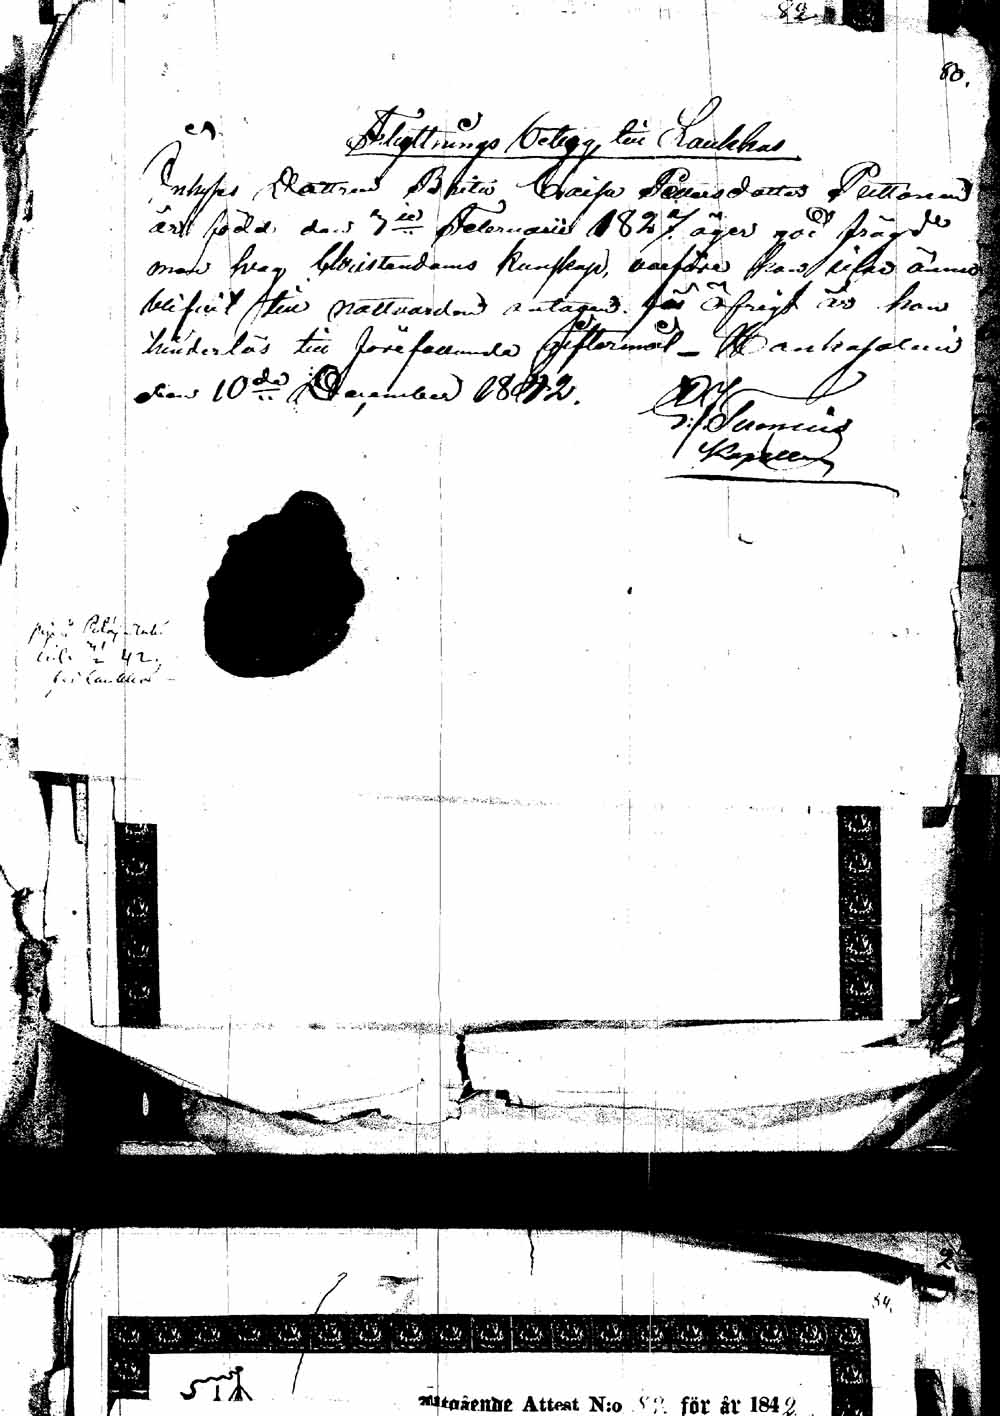 82
83.
Flyttnings Betygg till Laukkas
Inhyses Dottren Brita Caisa Pettersdotter Puttonen
är född den 7de Februarii 1827. äger god frägd
men svag Christendoms kunskap, varföre hon icke ännu
blifvit till nattvarden antagen. för öfrigt är hon
hinderlös till förefallande giftermål – Hankasalmi
den 10de December 1842.
Kapellan
42.
2
84.
51
Utgående Attest N:o 82 för år 1842